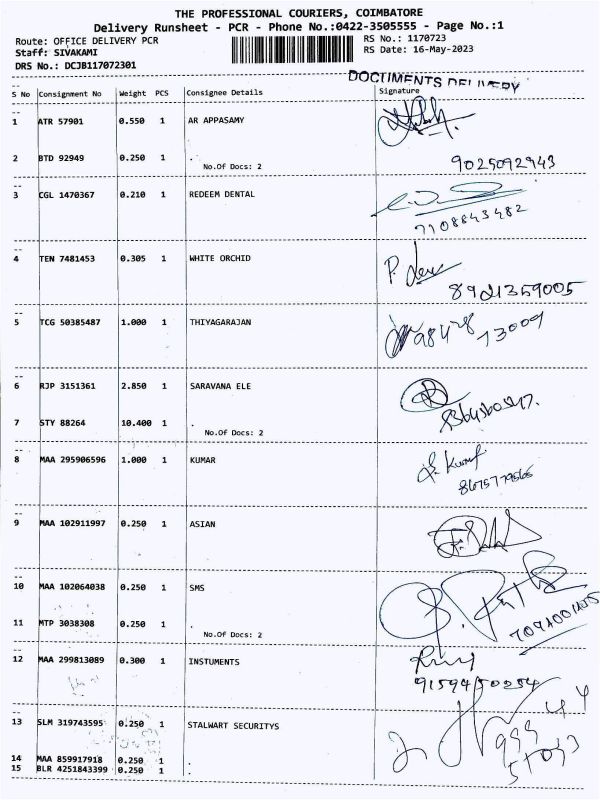 THE PROFESSIONAL COURIERS, COIMBATORE
Delivery Runsheet - PCR - Phone No.:0422-3505555 - Page No.:1
Route: OFFICE DELIVERY PCR RS No.: 1170723
Staff: SIVAKAMI RS Date: 16-May-2023
DRS No.: DCJB117072301
DOCUMENTS DELIVERY
S No Consignment No Weight PCS Consignee Details Signature
1 ATR 57901 0.550 1 AR APPASAMY
2 BTD 92949 0.250 1 .
No.Of Docs: 2 9025092943
3 CGL 1470367 0.210 1 REDEEM DENTAL
7108843482
4 TEN 7481453 0.305 1 WHITE ORCHID
8921359005
5 TCG 50385487 1.000 1 THIYAGARAJAN
98428 73009
6 RJP 3151361 2.850 1 SARAVANA ELE
7 STY 88264 10.400 1 .
No.Of Docs: 2
8 MAA 295906596 1.000 1 KUMAR
9 MAA 102911997 0.250 1 ASIAN
10 MAA 102064038 0.250 1 SMS
11 MTP 3038308 0.250 1 .
No.Of Docs: 2
12 MAA 299813089 0.300 1 INSTUMENTS
13 SLM 319743595 0.250 1 STALWART SECURITYS
14 MAA 859917918 0.250 1 .
15 BLR 4251843399 0.250 1 .